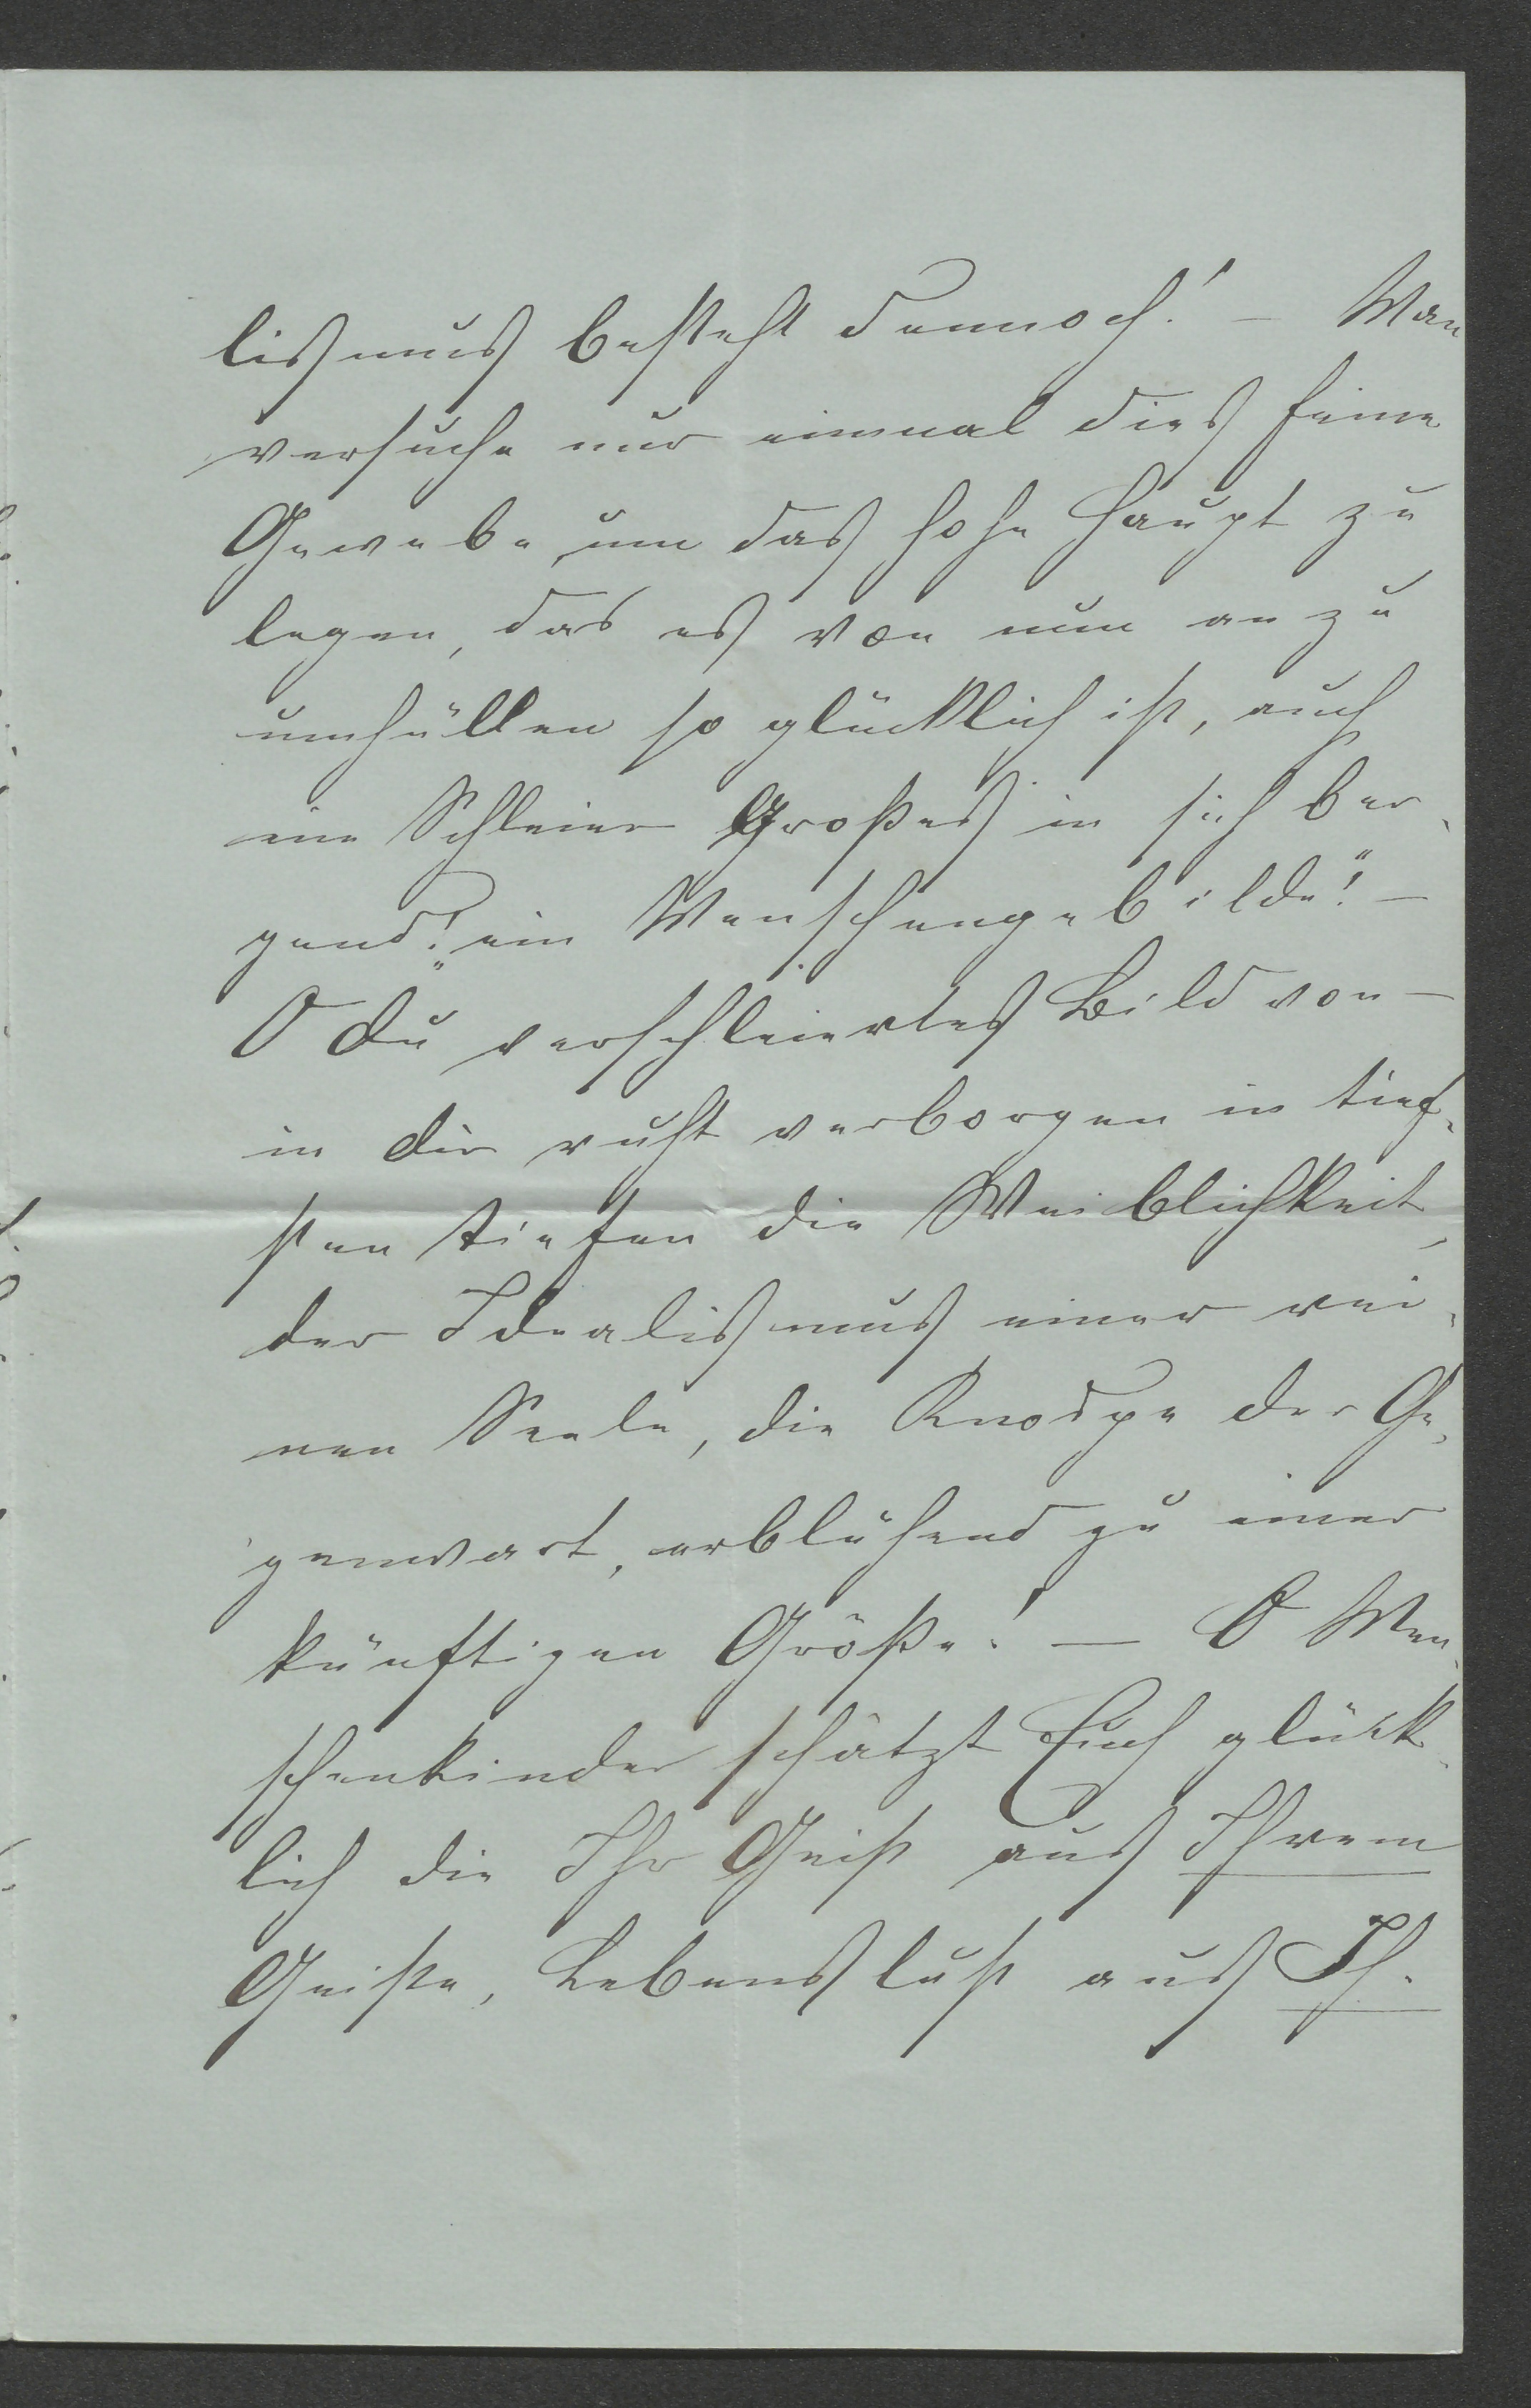 lismus besteht dennoch! — Man
versuche nur einmal dies feine
Gewebe, um das hohe Haupt zu
legen, das es von nun an zu
umhüllen so glücklich ist, auch
ein Schleier Großes in sich ber-
gend! „ein Menschengebilde!“ —
O Du verschleiertes Bild von —
in Dir ruht verborgen in tief-
sten Tiefen die Weiblichkeit,
der Idealismus einer rei-
nen Seele, die Knospe der Ge-
genwart, erblühend zu einer
künftigen Größe! — O Men-
schenkinder schätzt Euch glück-
lich die Ihr Geist aus Ihrem
Geiste, Lebenslust aus Ih-